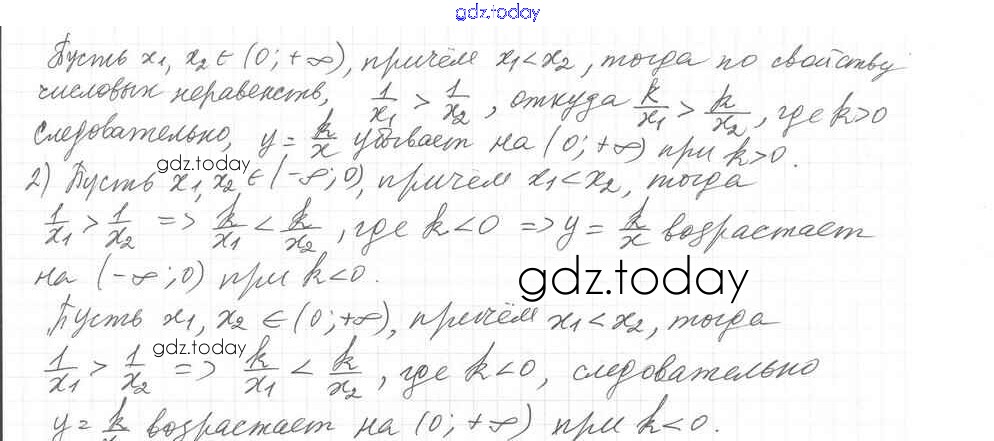 gdz.today
Пусть x₁, x₂ ∈ (0; +∞), причём x₁ < x₂, тогда по свойству
числовых неравенств, 1/x₁ > 1/x₂, откуда k/x₁ > k/x₂, где k>0
следовательно, y = k/x убывает на (0; +∞) при k>0.
gdz.today
2) Пусть x₁, x₂ ∈ (-∞; 0), причём x₁ < x₂, тогда
1/x₁ > 1/x₂ => k/x₁ < k/x₂, где k<0 => y = k/x возрастает
на (-∞; 0) при k<0.
gdz.today
Пусть x₁, x₂ ∈ (0; +∞), причём x₁ < x₂, тогда
gdz.today
1/x₁ > 1/x₂ => k/x₁ < k/x₂, где k<0, следовательно
y = k/x возрастает на (0; +∞) при k<0.